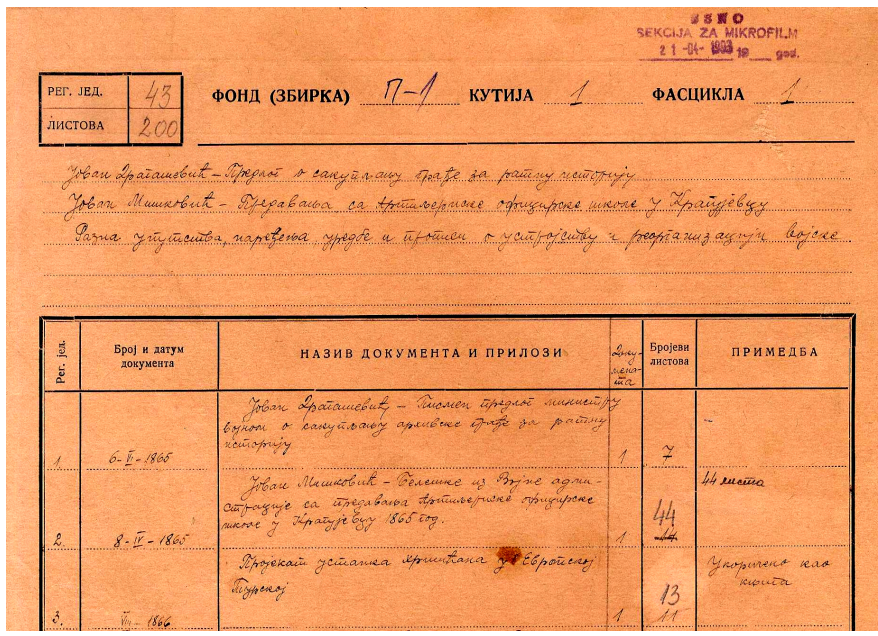 SSNO
SEKCIJA ZA MIKROFILM
21 -04- 1983 19 god.
РЕГ. ЈЕД. 43
ЛИСТОВА 200
ФОНД (ЗБИРКА) П-1 КУТИЈА 1 ФАСЦИКЛА 1
Јован Драгашевић – Предлог о сакупљању грађе за ратну историју
Јован Мишковић – Предавања са Артиљериске официрске школе у Крагујевцу
Разна упутства, наређења уредбе и о устројству и реорганизацији војске
Рег. јед.
Број и датум
документа
НАЗИВ ДОКУМЕНТА И ПРИЛОЗИ
Доку-
мена-
та
Бројеви
листова
ПРИМЕДБА
Јован Драгашевић, – Писмен предлог министру
војном о сакупљању архивске грађе за ратну
историју
1. 6-II-1865 1 7 –
Јован Мишковић – Белешке из Војне адми-
страције са предавања Артиљериске официрске
школе у Крагујевцу 1865 год.
44 листа
44
2. 8-IV-1865 1
Пројекат устанка хришћана у Европској
Турској
Укоричено као
књига
13
3. VIII-1866 1 11